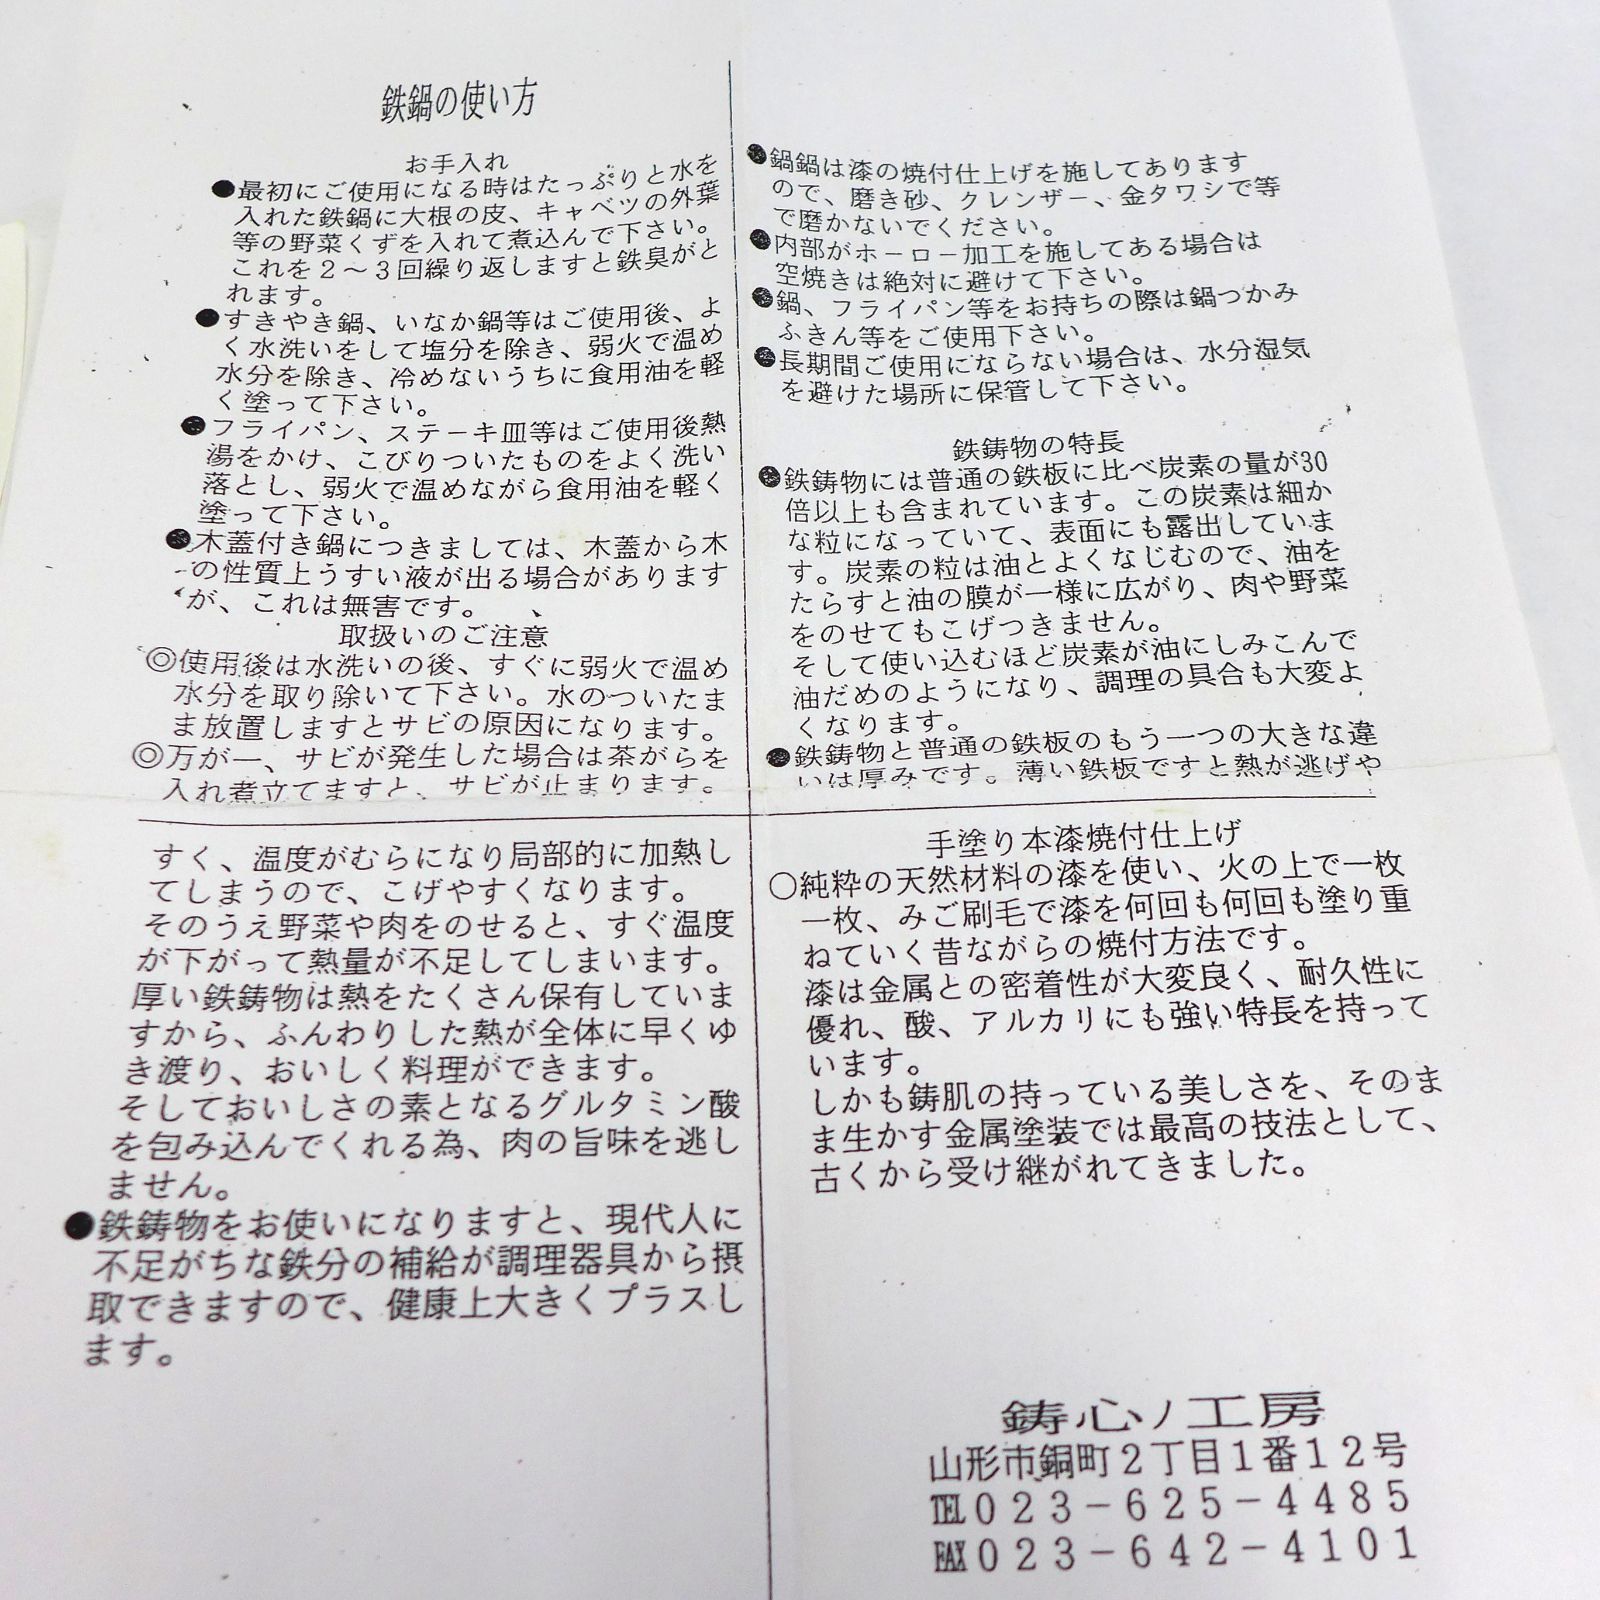 鉄鍋の使い方
お手入れ
●最初にご使用になる時はたっぷりと水を
入れた鉄鍋に大根の皮、キャベツの外葉
等の野菜くずを入れて煮込んで下さい。
これを2〜3回繰り返しますと鉄臭がと
れます。
●すきやき鍋、いなか鍋等はご使用後、よ
く水洗いをして塩分を除き、弱火で温め
水分を除き、冷めないうちに食用油を軽
く塗って下さい。
●フライパン、ステーキ皿等はご使用後熱
湯をかけ、こびりついたものをよく洗い
落とし、弱火で温めながら食用油を軽く
塗って下さい。
●木蓋付き鍋につきましては、木蓋から木
の性質上うすい液が出る場合があります
が、これは無害です。
取扱いのご注意
◎使用後は水洗いの後、すぐに弱火で温め
水分を取り除いて下さい。水のついたま
ま放置しますとサビの原因になります。
◎万が一、サビが発生した場合は茶がらを
入れ煮立てますと、サビが止まります。
●鍋鍋は漆の焼付仕上げを施してあります
ので、磨き砂、クレンザー、金タワシで等
で磨かないでください。
●内部がホーロー加工を施してある場合は
空焼きは絶対に避けて下さい。
●鍋、フライパン等をお持ちの際は鍋つかみ
ふきん等をご使用下さい。
●長期間ご使用にならない場合は、水分湿気
を避けた場所に保管して下さい。
鉄鋳物の特長
●鉄鋳物には普通の鉄板に比べ炭素の量が30
倍以上も含まれています。この炭素は細か
な粒になっていて、表面にも露出していま
す。炭素の粒は油とよくなじむので、油を
たらすと油の膜が一様に広がり、肉や野菜
をのせてもこげつきません。
そして使い込むほど炭素が油にしみこんで
油だめのようになり、調理の具合も大変よ
くなります。
●鉄鋳物と普通の鉄板のもう一つの大きな違
いは厚みです。薄い鉄板ですと熱が逃げや
すく、温度がむらになり局部的に加熱し
てしまうので、こげやすくなります。
そのうえ野菜や肉をのせると、すぐ温度
が下がって熱量が不足してしまいます。
厚い鉄鋳物は熱をたくさん保有していま
すから、ふんわりした熱が全体に早くゆ
き渡り、おいしく料理ができます。
そしておいしさの素となるグルタミン酸
を包み込んでくれる為、肉の旨味を逃し
ません。
●鉄鋳物をお使いになりますと、現代人に
不足がちな鉄分の補給が調理器具から摂
取できますので、健康上大きくプラスし
ます。
手塗り本漆焼付仕上げ
○純粋の天然材料の漆を使い、火の上で一枚
一枚、みご刷毛で漆を何回も何回も塗り重
ねていく昔ながらの焼付方法です。
漆は金属との密着性が大変良く、耐久性に
優れ、酸、アルカリにも強い特長を持って
います。
しかも鋳肌の持っている美しさを、そのま
ま生かす金属塗装では最高の技法として、
古くから受け継がれてきました。
鋳心ノ工房
山形市銅町2丁目1番12号
TEL023-625-4485
FAX023-642-4101